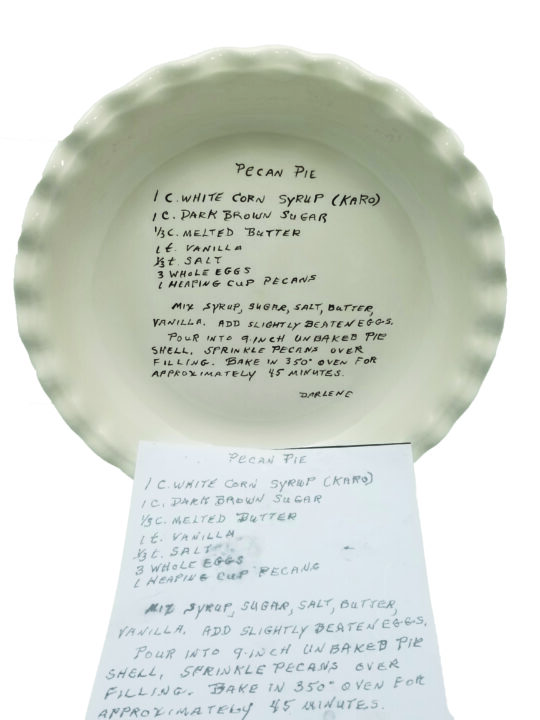 PECAN PIE
1 C. WHITE CORN SYRUP (KARO)
1 C. DARK BROWN SUGAR
1/3 C. MELTED BUTTER
1 t. VANILLA
1/3 t. SALT
3 WHOLE EGGS
1 HEAPING CUP PECANS
MIX SYRUP, SUGAR, SALT, BUTTER,
VANILLA. ADD SLIGHTLY BEATEN EGGS.
POUR INTO 9-INCH UNBAKED PIE
SHELL, SPRINKLE PECANS OVER
FILLING. BAKE IN 350° OVEN FOR
APPROXIMATELY 45 MINUTES.
DARLENE
PECAN PIE
1 C. WHITE CORN SYRUP (KARO)
1 C. DARK BROWN SUGAR
1/3 C. MELTED BUTTER
1 t. VANILLA
1/3 t. SALT
3 WHOLE EGGS
1 HEAPING CUP PECANS
MIX SYRUP, SUGAR, SALT, BUTTER,
VANILLA. ADD SLIGHTLY BEATEN EGGS.
POUR INTO 9-INCH UNBAKED PIE
SHELL, SPRINKLE PECANS OVER
FILLING. BAKE IN 350° OVEN FOR
APPROXIMATELY 45 MINUTES.